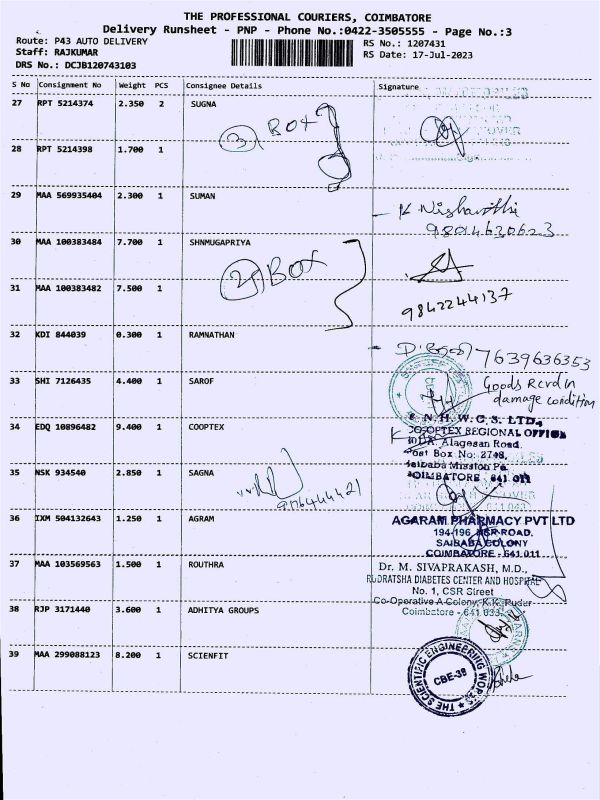 THE PROFESSIONAL COURIERS, COIMBATORE
Delivery Runsheet - PNP - Phone No.:0422-3505555 - Page No.:3
Route: P43 AUTO DELIVERY
Staff: RAJKUMAR
DRS No.: DCJB120743103
RS No.: 1207431
RS Date: 17-Jul-2023
S No Consignment No Weight PCS Consignee Details Signature
27 RPT 5214374 2.350 2 SUGNA
3 Box
28 RPT 5214398 1.700 1
29 MAA 569935404 2.300 1 SUMAN
30 MAA 100383484 7.700 1 SHNMUGAPRIYA
2 Box
31 MAA 100383482 7.500 1
9842244137
32 KDI 844039 0.300 1 RAMNATHAN
7639636353
33 SHI 7126435 4.400 1 SAROF
Goods Rcvd In
damage condition
34 EDQ 10896482 9.400 1 COOPTEX
N. H. W. C. S. LTD.,
CO-OPTEX REGIONAL OFFICE
Alagesan Road.
Post Box No: 2748,
Saibaba Mission Po
COIMBATORE - 641 011
35 NSK 934540 2.850 1 SAGNA
36 IXM 504132643 1.250 1 AGRAM
AGARAM PHARMACY PVT LTD
194-196, NSR ROAD,
SAIBABA COLONY
COIMBATORE - 641 011
37 MAA 103569563 1.500 1 ROUTHRA
Dr. M. SIVAPRAKASH, M.D.,
RUDRATSHA DIABETES CENTER AND HOSPITAL
No. 1, CSR Street
Co-Operative A Colony, K.K. Pudur
Coimbatore - 641 033.
38 RJP 3171440 3.600 1 ADHITYA GROUPS
39 MAA 299088123 8.200 1 SCIENFIT
THE SCIENTIFIC ENGINEERING WORKS
CBE-38